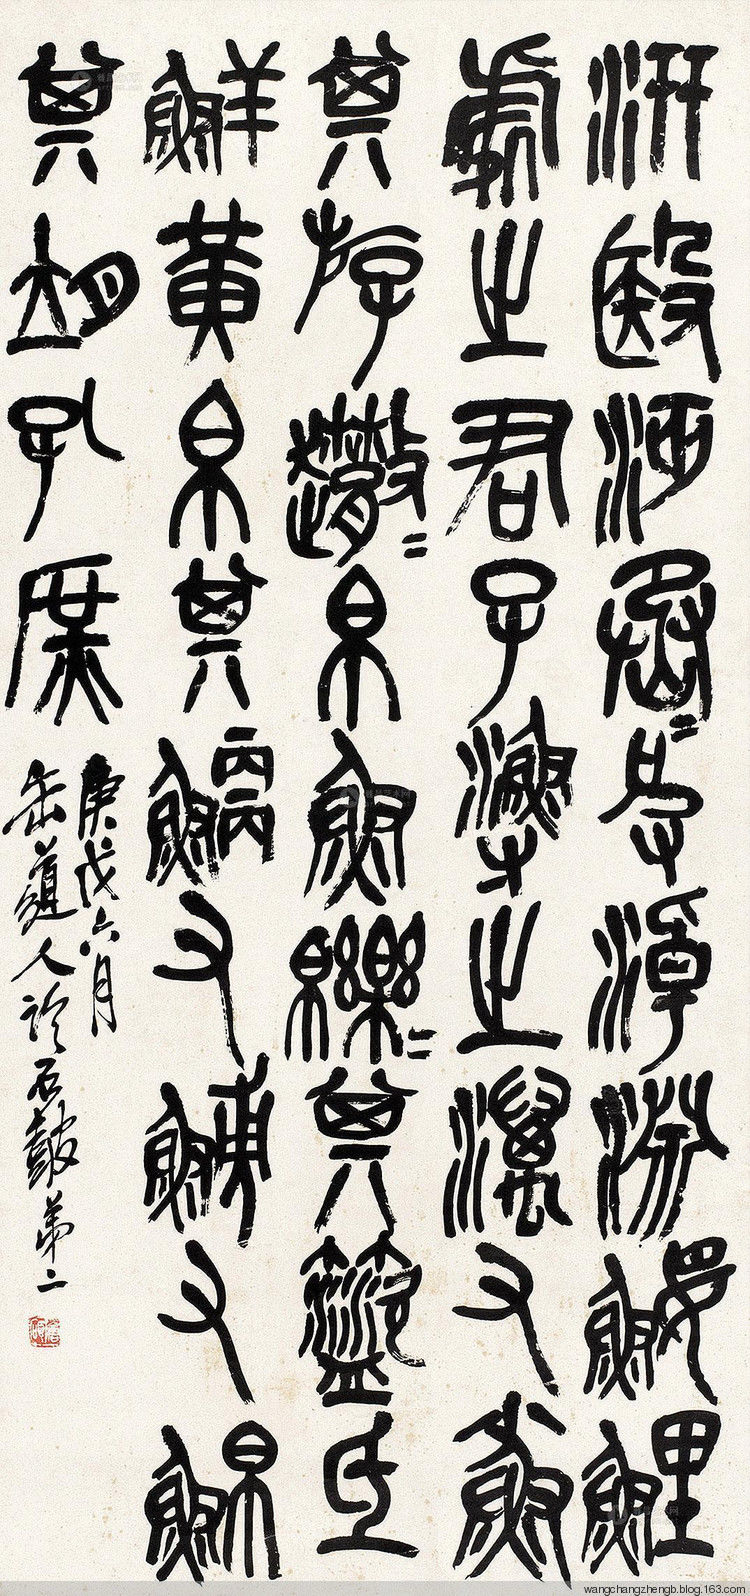 汧殹沔丞=皮淖淵鰋鯉
處之君子漁之澫又小魚
其斿=帛魚=其氐
鮮黃帛其鯾又鱄又鮊
其孔庶
庚戌六月
缶道人臨石鼓第二
wangchangzhengb.blog.163.com